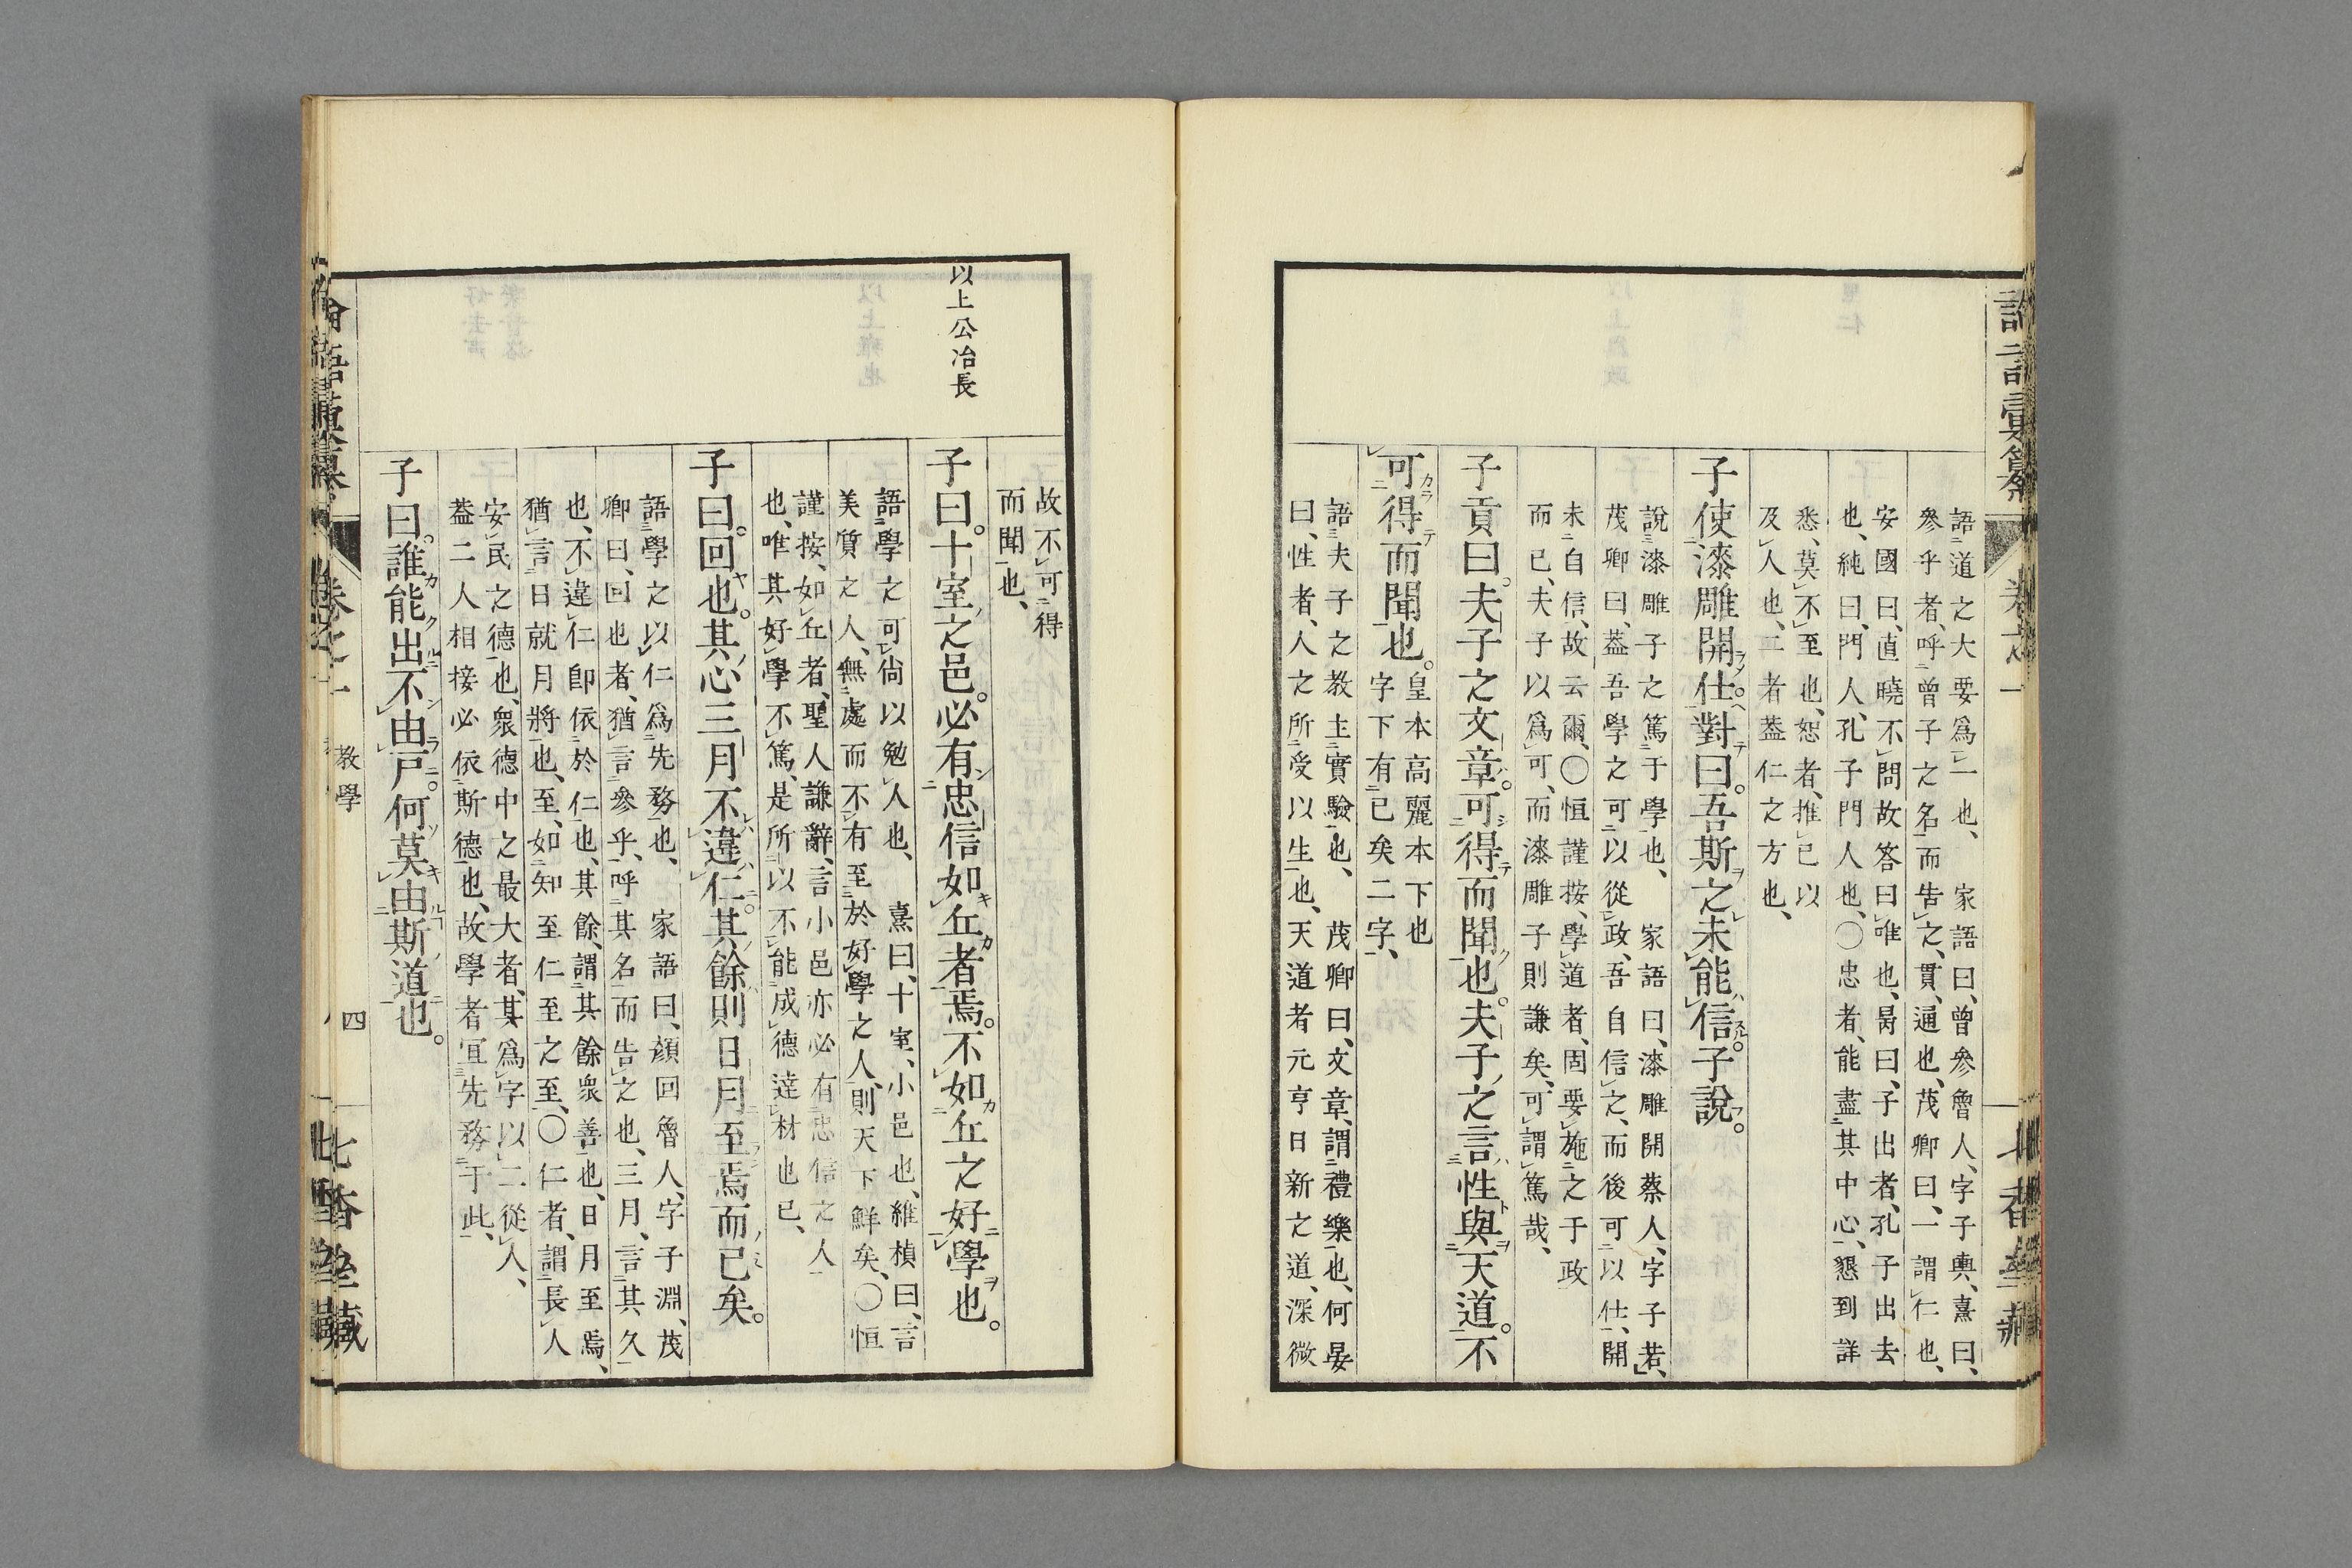 語道之大要爲一也、家語曰、曾參魯人、字子輿、熹曰、
參乎者、呼曾子之名而告之、貫、通也、茂卿曰、一謂仁也、
安國曰、直曉不問故答曰唯也、昺曰、子出者、孔子出去
也、純曰、門人、孔子門人也、〇忠者、能盡其中心、懇到詳
悉、莫不至也、恕者、推己以
及人也、二者葢仁之方也、
子使漆雕開仕。對曰。吾斯之未能信。子說。
說漆雕子之篤于學也、家語曰、漆雕開蔡人、字子若、
茂卿曰、葢吾學之可以從政、吾自信之、而後可以仕、開
未自信、故云爾、〇恒謹按、學道者、固要施之于政
而已、夫子以爲可、而漆雕子則謙矣、可謂篤哉、
子貢曰。夫子之文章。可得而聞也。夫子之言性與天道。不
可得而聞也。
皇本高麗本下也
字下有已矣二字、
語夫子之教主實驗也、茂卿曰、文章、謂禮樂也、何晏
曰、性者、人之所受以生也、天道者元亨日新之道、深微
故不可得
而聞也、
以上公冶長
子曰。十室之邑。必有忠信如丘者焉。不如丘之好學也。
語學之可尙以勉人也、熹曰、十室、小邑也、維楨曰、言
美質之人、無處而不有、至於好學之人、則天下鮮矣、〇恒
謹按、如丘者、聖人謙辭、言小邑亦必有忠信之人
也、唯其好學不篤、是所以不能成德達材也已、
子曰。回也。其心三月不違仁。其餘則日月至焉而已矣。
語學之以仁爲先務也、家語曰、顏回魯人、字子淵、茂
卿曰、回也者、猶言參乎、呼其名而告之也、三月、言其久
也、不違仁卽依於仁也、其餘、謂其餘衆善也、日月至焉、
猶言日就月將也、至、如知至仁至之至、〇仁者、謂長人
安民之德也、衆德中之最大者、其爲字以二從人、
葢二人相接必依斯德也、故學者宜先務于此、
子曰。誰能出不由戸。何莫由斯道也。
論語彙纂 卷之一 教學 四 此君堂藏